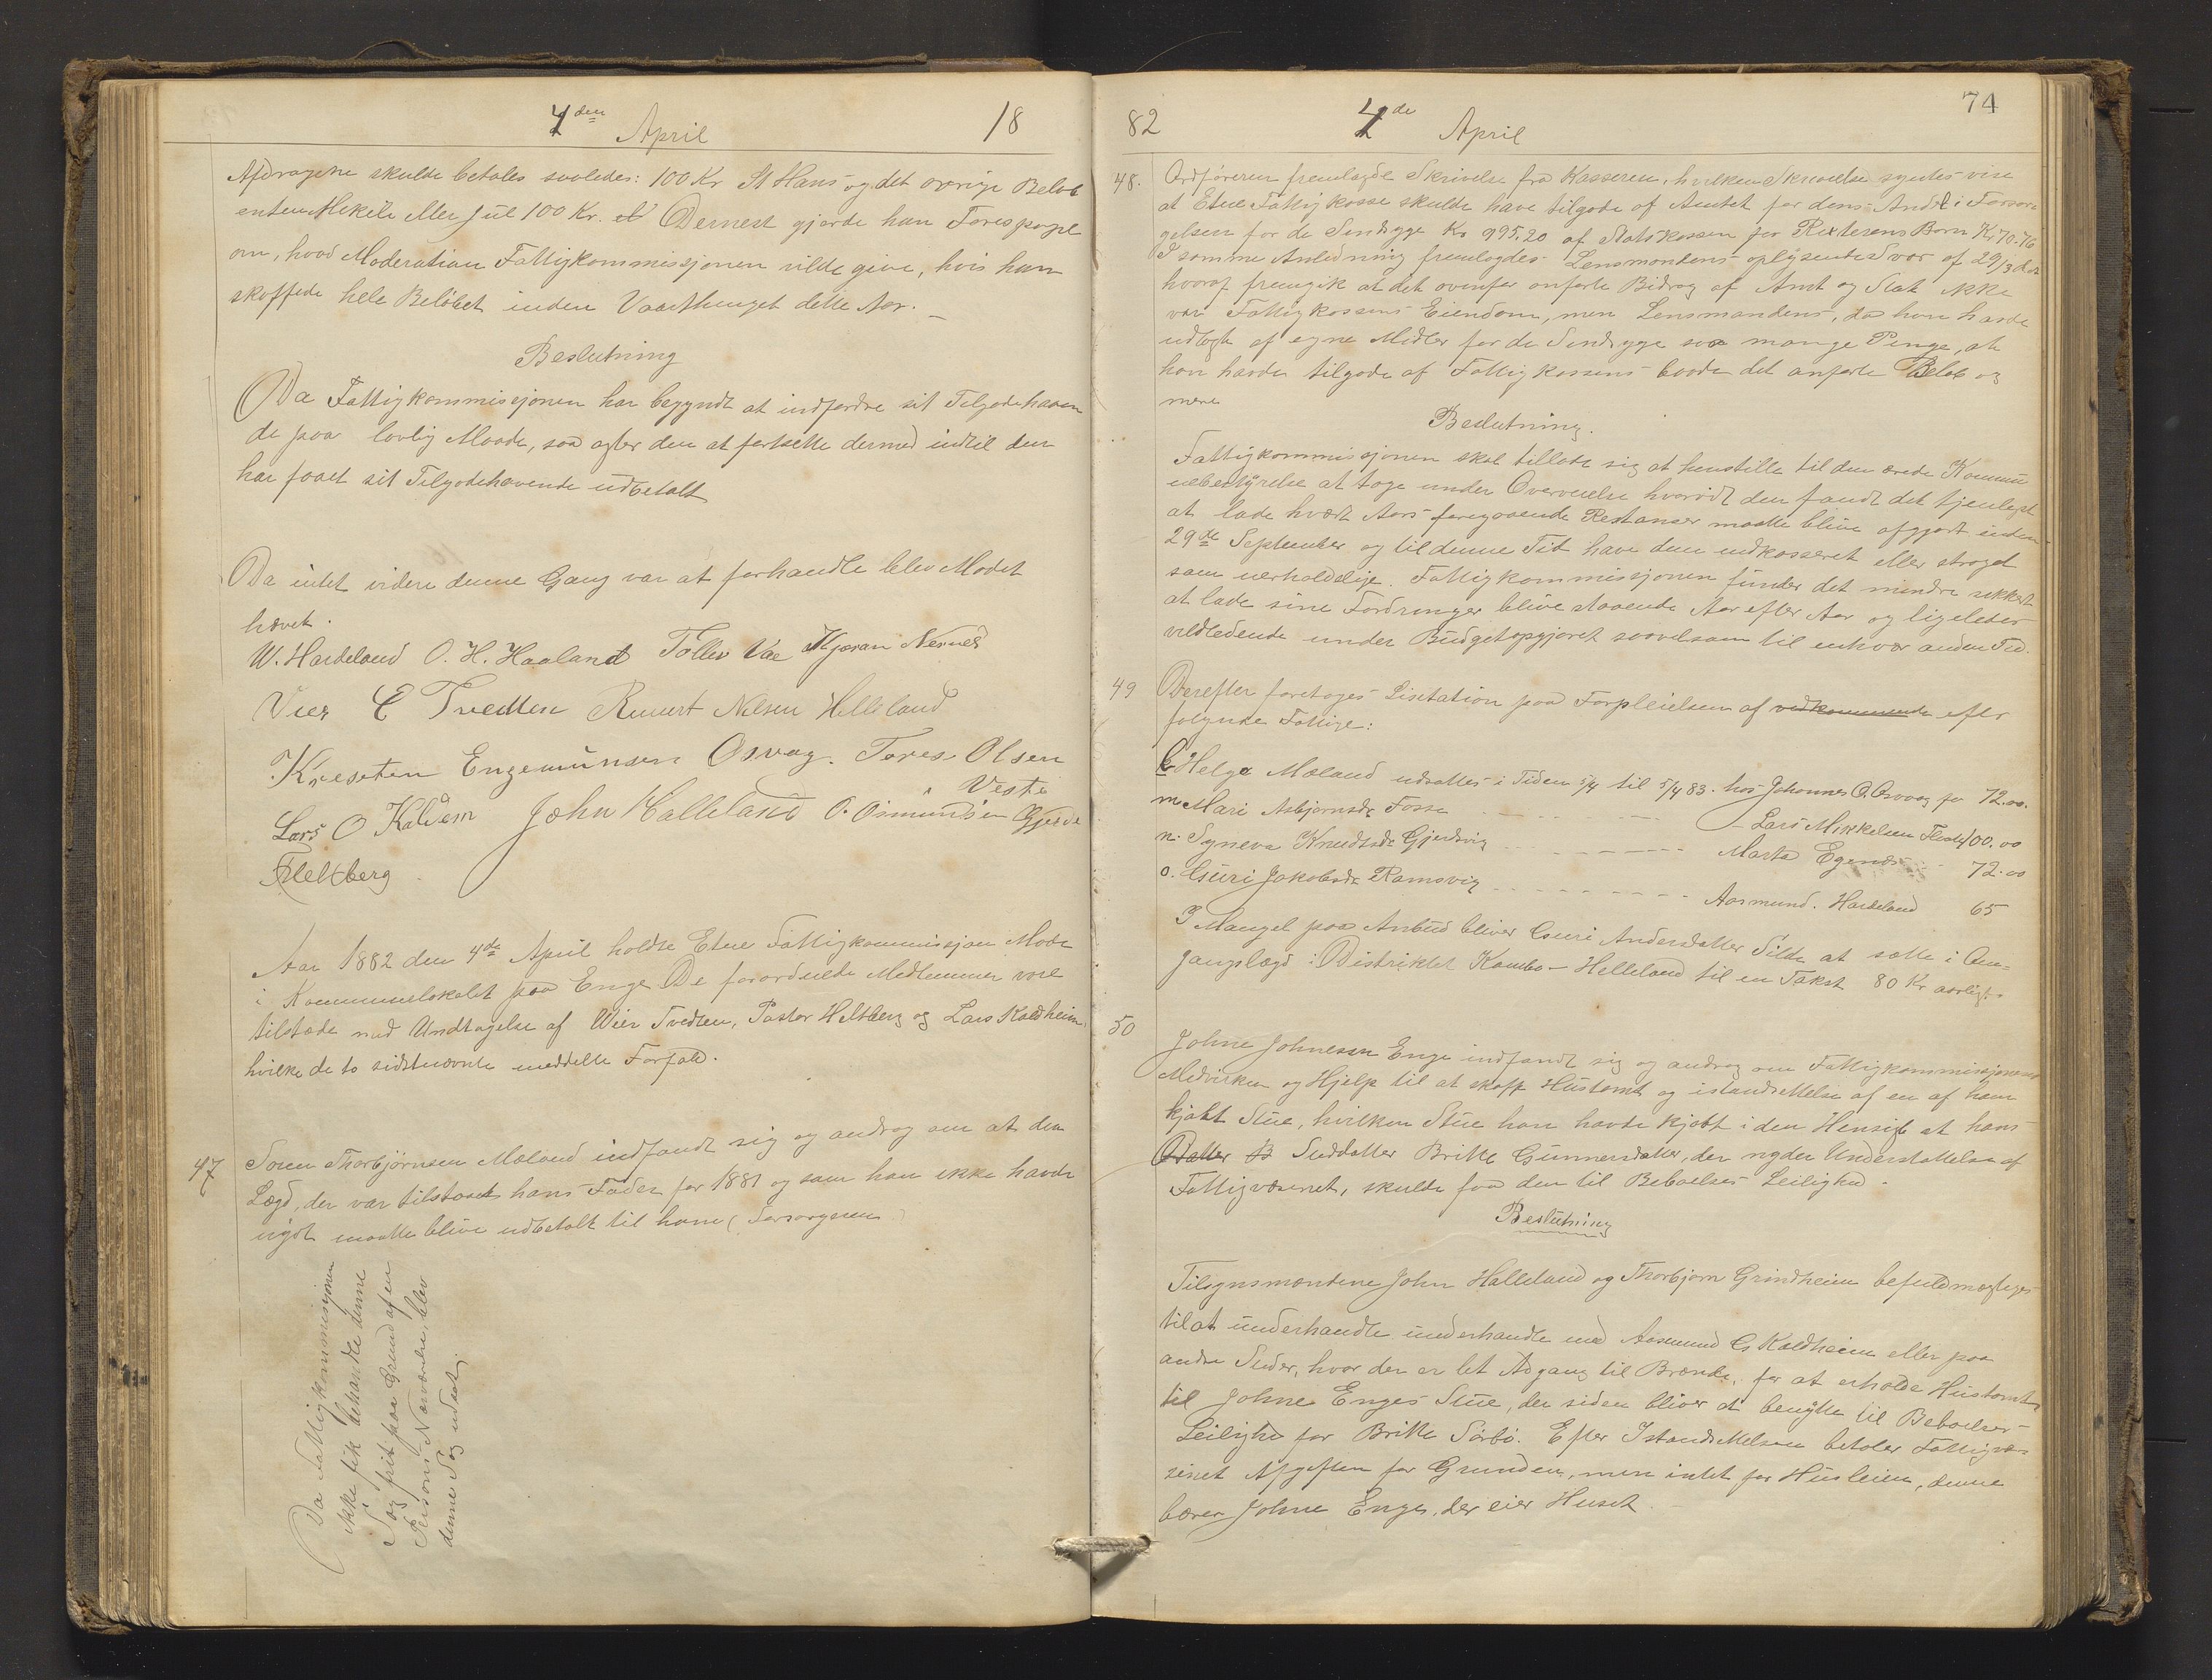 4den April 18
Afdragene skulde betales saaledes: 100 Kr St Hans og det øvrige Beløb
enten Mikeli eller Jul 100 Kr. Dernest gjorde han Forespørgsel
om, hvad Moderation Fattigkommissjonen vilde give, hvis han
skaffede hele Beløbet inden Vaarthinget dette Aar. —
Beslutning
Da Fattigkommissjonen har begyndt at indfordre sit Tilgodehaven
de paa lovlig Maade, saa agter den at fortsette dermed indtil den
har faaet sit Tilgodehavende udbetalt
Da intet videre denne Gang var at forhandle blev Mødet
hævet.
W. Hardeland O. H. Haaland Tollev Vae Mjøran Nernes
Vier E Tvedten Reinert Nilsen Helleland
Kresten Engemunsen Osvag. Tores Olsen
Veste
Lars O Kaldem John Halleland O. Osmundsen Gjerde
Heltberg
Aar 1882 den 4de April holdte Etne Fattigkommissjon Møde
i Kommunelokalet paa Enge De forordnede Medlemmer vare
tilstæde med Undtagelse af Wier Tvedten, Pastor Heltberg og Lars Kaldheim,
hvilke de to sidstnævnte meddelte Forfald.
47 Søren Thorbjørnsen Mæland indfandt sig og androg om at den
Lægd, der var tilstaaet hans Fader for 1881 og som han ikke havde
nydt maatte blive udbetalt til ham (Forsørgeren)
Da Fattigkommissjonen
ikke fik behandle denne
Sag frit paa Grund af en
Persons Nærværelse, blev
denne Sag udsat.
82 4de April 74
48. Ordføreren fremlagde Skrivelse fra Kassereren, hvilken Skrivelse syntes vise
at Etne Fattigkasse skulde have tilgode af Amtet for dens Andel i Forsør
gelsen for de Sindsyge Kr 995,20 af Statskassen for Børn Kr 70.76
I samme Anledning fremlagdes Lensmandens oplysende Svar af 29/3 d.A
hvoraf fremgik at det ovenfor anførte Bidrag af Amt og Stat ikke
var Fattigkassens Eiendom, men Lensmandens, da han havde
udlagt af egne Midler for de Sindsyge saa mange Penge, at
han havde tilgode af Fattigkassens baade det anførte Beløb og
mere
Beslutning.
Fattigkommissjonen skal tillade sig at henstille til den ærede Kommu
nebestyrelse at tage under Overveielse hvorvidt den fandt det tjenligst
at lade hvært Aars foregaaende Restanser maatte blive afgjort inden
29de September og til denne Tid have dem indkasseret eller strøget
som uerholdelige. Fattigkommissjonen finder det mindre sikkert
at lade sine Fordringer blive staaende Aar efter Aar og ligeledes
vildledende under Budgetopgjøret saavelsom til enhver anden Tid.
49 Derefter foretoges Lisitation paa Forpleielsen af vedkommende efter
følgende Fattige:
Helga Mæland udsattes i Tiden 5/4 til 5/4 83. hos Johannes O. Osvag for 72.00.
m Mari Asbjørnsdr Fosse - - - - Lars Mikkelsen 100.00
n. Syneva Knudsdr Gjerdsvig - - - - Marta Egenæs 72.00
o. Guri Jakobsdr Ramsvig - - - - Aasmund. Hardeland 65
I Mangel paa Anbud bliver Guri Andersdatter Silde at sætte i Om=
gangslægd i Distriktet Kambo - Helleland til en Takst 80 Kr aarligt.
50 Johne Johnesen Enge indfandt sig og androg om Fattigkommissjonens
Medvirken og Hjelp til at skaffe Hustomt og istandsettelse af en af ham
kjøbt Stue, hvilken Stue han havde kjøbt i den Hensigt at hans
Datter B Steddatter Britte Gunnersdatter, der nyder Understøttelse af
Fattigvæsenet, skulde faa den til Beboelses Leilighed.
Beslutning
Tilsynsmændene John Halleland og Thorbjørn Grindheim befuldmægtiges
til at underhandle underhandle med Aasmund G Kaldheim eller paa
andre Steder, hvor der er let Adgang til Brænde, for at erholde Hustomt
til Johne Enges Stue, der siden bliver at benytte til Beboelses-
Leilighed for Britte Sørbø. Efter Istandsettelsen betaler Fattigvæ-
senet Afgiften for Grunden, men intet for Husleien, denne
bærer Johne Enge, der eier Huset